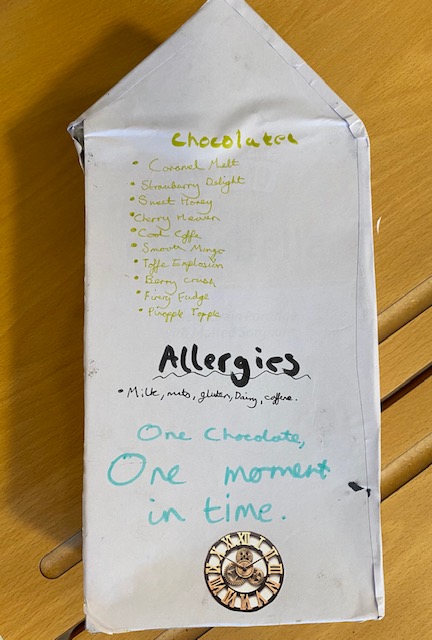 Chocolates
• Caramel Melt
• Strawberry Delight
• Sweet Honey
• Cherry Heaven
• Cool Coffe
• Smooth Mango
• Toffe Explosion
• Berry crush
• Firey Fudge
• Pineapple Topple
Allergies
• Milk, nuts, gluten, Dairy, coffene.
One Chocolate,
One moment
in time.